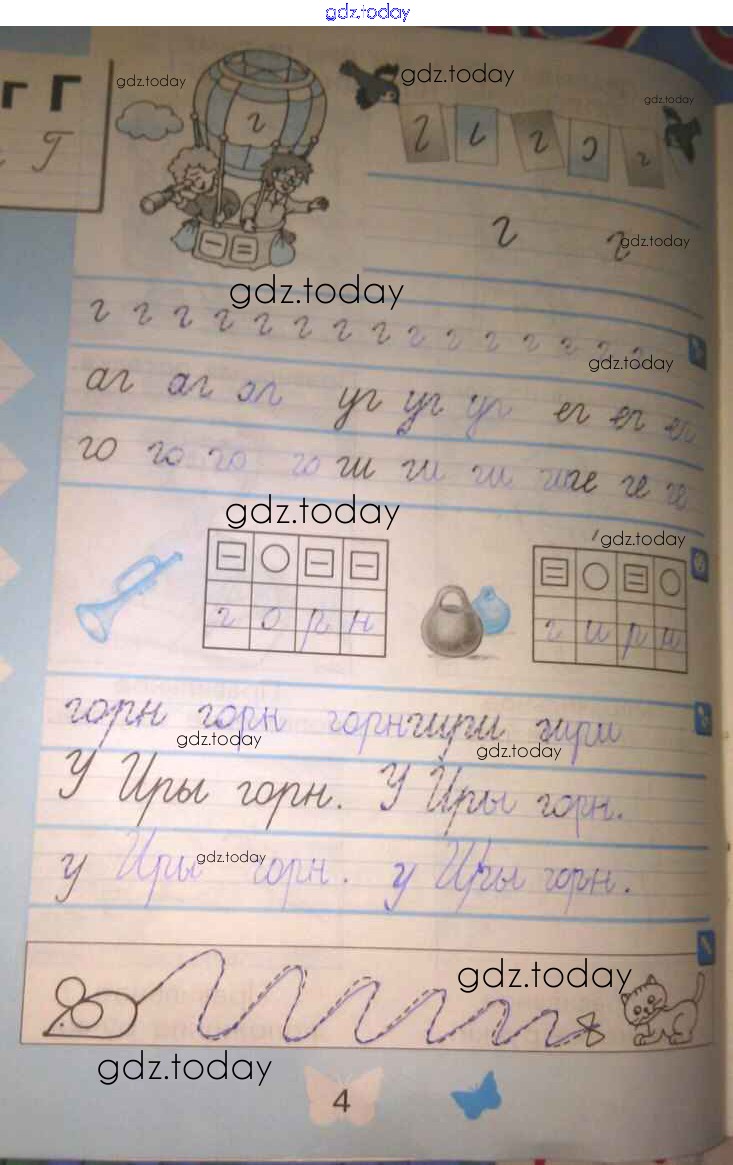 gdz.today
г Г gdz.today г gdz.today gdz.today
Г г г г г г
г г gdz.today
gdz.today
г г г г г г г г г г г г г г
gdz.today
аг аг аг уг уг уг ег ег ег
го го го го ги ги ги ги ге ге ге
gdz.today gdz.today
г о р н г и р и
горн горн горн гири гири
gdz.today gdz.today
У Иры горн. У Иры горн.
у Иры горн. у Иры горн.
gdz.today
gdz.today
gdz.today
4